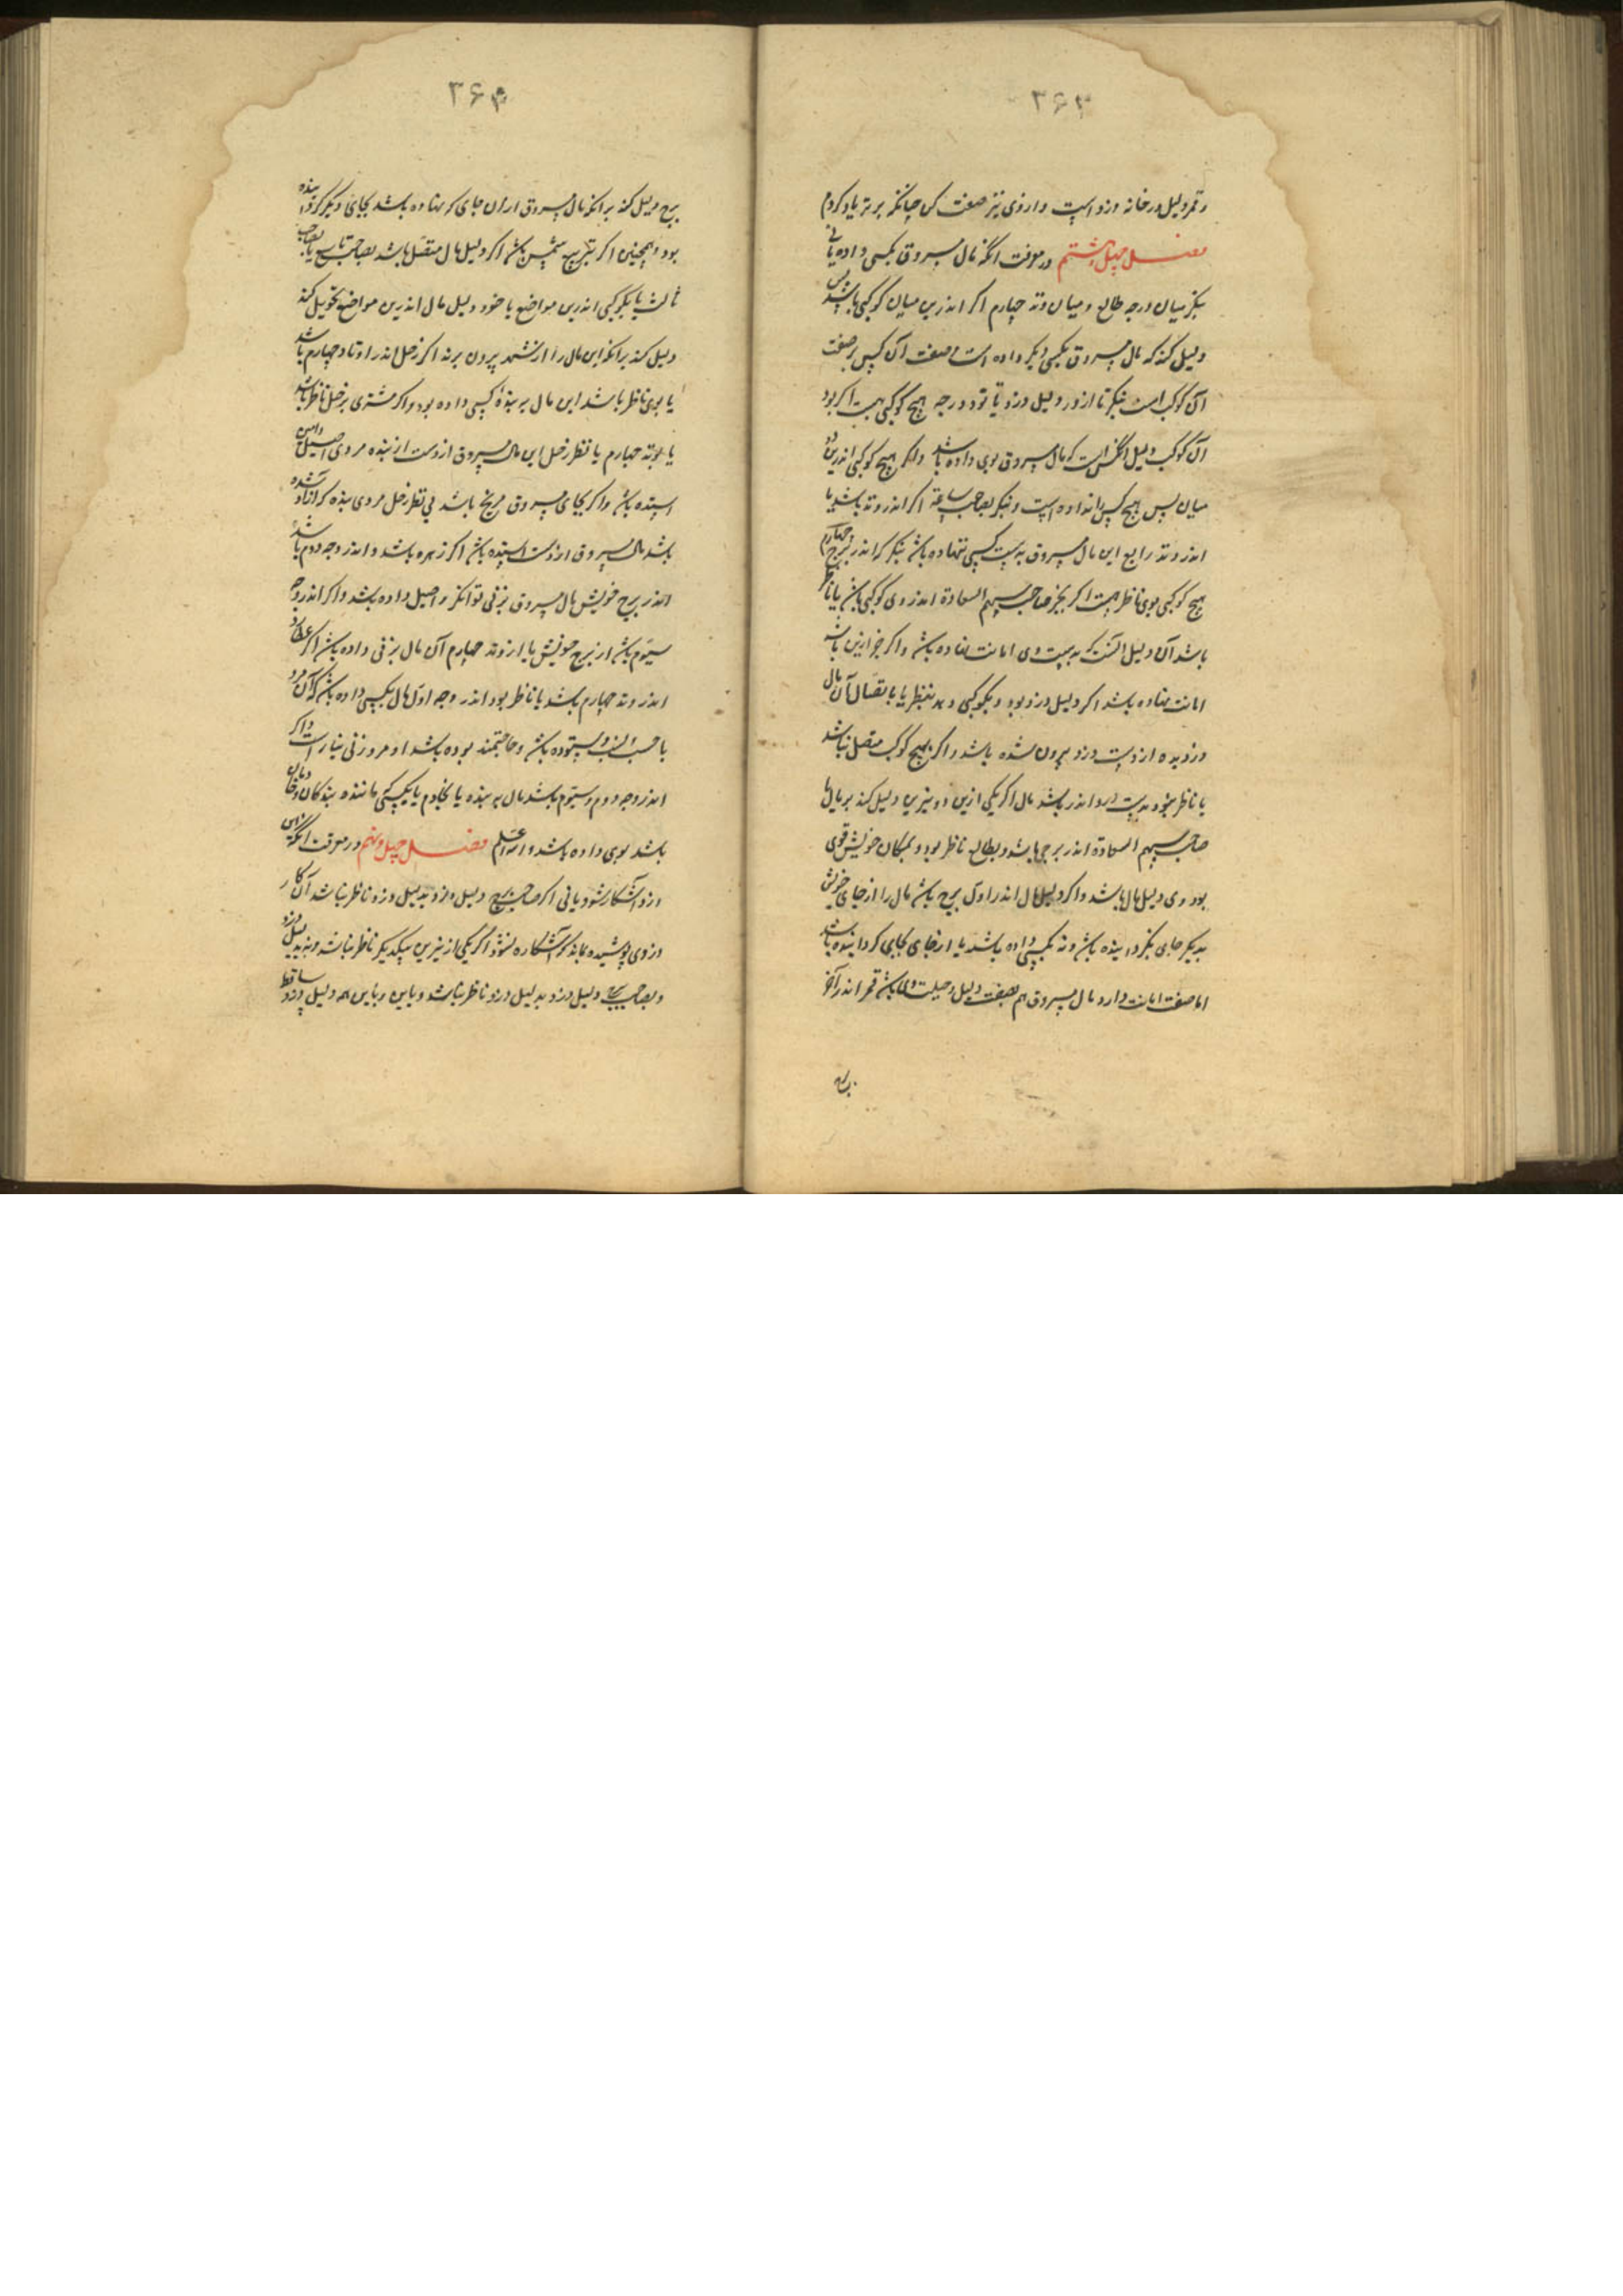 ۳۶۳
و قمر دلیل در خانه دزد است و از وی نیز صفت کن چنانکه برتر یاد کردم
فصل چهل و هشتم در معرفت آنکه مال مسروق بکسی داده یا نی
بنگر میان درجه طالع و میان وتد چهارم اگر اندرین میان کوکبی باشد پس
دلیل کند که مال مسروق بکسی دیگر داده است و صفت آن کس بر صفت
آن کوکب است بنگر تا از دور دلیل دزد تا نود درجه هیچ کوکبی هست اگر بود
آن کوکب دلیل آنکس است که مال مسروق بوی داده باشد و اگر هیچ کوکبی اندرین دو
میان پس هیچ کس را نداده است و بنگر بصاحب ساعة اگر اندر وتد باشد یا
اندر وتد رابع این مال مسروق بدست کسی ننهاده باشد بنگر که اندر برج چهارم
هیچ کوکبی بوی ناظر هست اگر بجز صاحب سهم السعادة اندر وی کوکبی باشد یا ناظر
باشد آن دلیل آنست که بدست وی امانت نهاده باشد و اگر جز ازین باشد
امانت نهاده باشد اگر دلیل دزد بود و بکوکبی دهد بنظر یا باتصال آن مال
دزدیده از دست دزد بیرون شده باشد و اگر بهیچ کوکب متصل نباشد
یا ناظر بخود بدست دزد اندر باشد مال اگر یکی ازین دو نیرین دلیل کند بر مالها
صاحب سهم السعادة اندر برجی باشد و بطالع ناظر بود و بمکان خویش قوی
بود وی دلیل مال باشد و اگر دلیل مال اندر اول برج باشد مال را از جای خویش
بدیگر جای بگردانیده باشد و نه بکسی داده باشد یا از جای بجای گردانیده باشد
اما صفت امانت دارد مال مسروق هم بصفت دلیل باشد قمر اندر آخر
برج
۳۶۴
برج دلیل کند بر آنکه مال مسروق از آن جای که نهاده باشد بجای دیگر گردانیده
بود و همچنین اگر بتربیع شمس باشد اگر دلیل مال متصل باشد بصاحب تاسع یا بصاحب
ثالث یا بکوکبی اندرین مواضع یا خود دلیل مال اندرین مواضع تحویل کند
دلیل کند بر آنکه این مال را از شهر بیرون برند اگر زحل اندر اوتاد چهارم باشد
یا بوی ناظر باشد این مال بر بندهٔ کسی داده بود و اگر مشتری بزحل ناظر باشد
یا بوتد چهارم یا نظر زحل این مال مسروق از دست از بنده مردی اصیل و امین
استده باشد و اگر بجای مسروق مریخ باشد بی نظر زحل مردی بنده که آزاد شده
باشد مال مسروق از دست استده باشد اگر زهره باشد و اندر وجه دوم باشد
اندر برج خویش مال مسروق بزنی توانگر و اصیل داده باشد و اگر اندر وجه
سیوم باشد از برج خویش یا از وتد چهارم آن مال بزنی داده باشد اگر عطارد
اندر وتد چهارم باشد یا ناظر بود اندر وجه اول مال بکسی داده باشد که آن مرد
با حسب و نسب و ستوده باشد و حاجتمند بوده باشد او مرد زنی نیاز است و اگر
اندر وجه دوم و سیوم باشد مال بر بنده یا بخادم یا بکسی ماننده بندگان و خادمان
باشد بوی داده باشد والله اعلم فصل چهل و نهم در معرفت آنکه این
دزد آشکار شود یا نی اگر صاحب برج دلیل دزد بدلیل دزد ناظر نباشد آن کار
دزدی پوشیده بماند که آشکاره نشود اگر یکی از نیرین بیکدیگر ناظر نباشد و نه بدلیل دزد
و بصاحب برج دلیل دزد بدلیل دزد ناظر نباشد و باین همه دلیل دزد ساقط